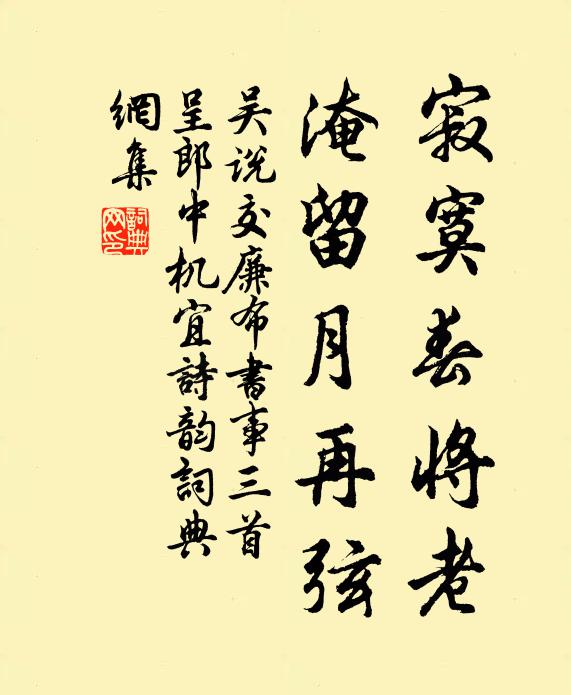 寂寞春將老
淹留月再弦
吴説交廉布書事三首
呈郎中机宜詩韵詞典
網集
詞典網印